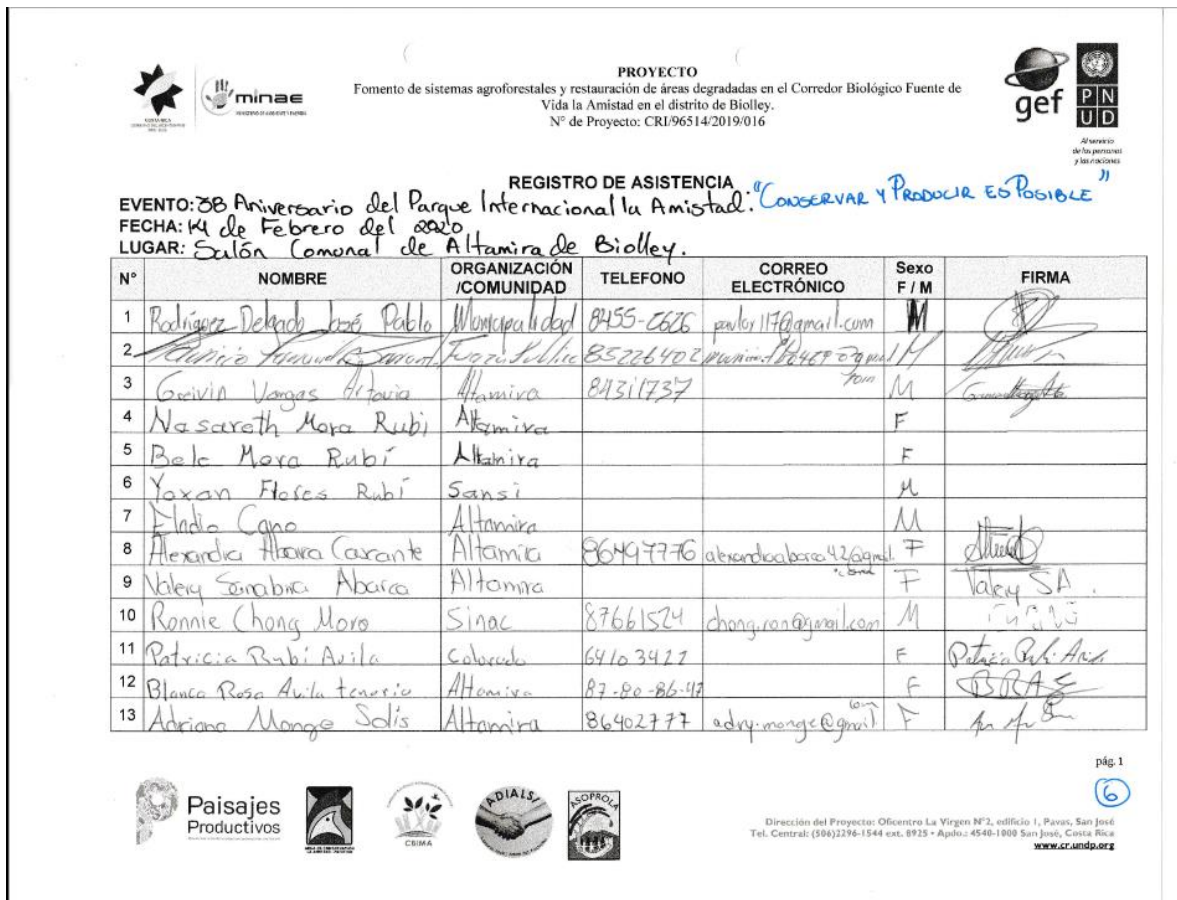 PROYECTO
Fomento de sistemas agroforestales y restauración de áreas degradadas en el Corredor Biológico Fuente de
Vida la Amistad en el distrito de Biolley.
N° de Proyecto: CRI/96514/2019/016
minae
gef
PN
UD
Al servicio
de las personas
y las naciones
REGISTRO DE ASISTENCIA
EVENTO: 38 Aniversario del Parque Internacional la Amistad: "CONSERVAR Y PRODUCIR ES POSIBLE"
FECHA: 14 de Febrero del 2020
LUGAR: Salón Comunal de Altamira de Biolley.
N° NOMBRE ORGANIZACIÓN /COMUNIDAD TELEFONO CORREO ELECTRÓNICO Sexo F / M FIRMA
1 Rodríguez Delgado José Pablo Municipalidad 8455-0626 pavlor117@gmail.com M
2 85226402 M
3 Greivin Vargas Altamira 84311737 M
4 Nasareth Mora Rubi Altamira F
5 Bele Mora Rubí Altamira F
6 Yoxan Flores Rubí Sansi M
7 Eladio Cano Altamira M
8 Alexandra Abarca Altamira 86497776 alexandraabarca42@gmail.com F
9 Valery Sanabria Abarca Altamira F Valery SA.
10 Ronnie Chong Mora Sinac 87661524 chong.ron@gmail.com M
11 Patricia Rubí Avila Colorado 64103422 F Patricia Rubí Avila
12 Blanca Rosa Avila tenorio Altamira 87-80-86-47 F
13 Adriana Monge Solís Altamira 86402777 adry.monge@gmail.com F
pág. 1
6
Paisajes
Productivos
CBIMA
ADIALSI
ASOPROLA
Dirección del Proyecto: Oficentro La Virgen N°2, edificio 1, Pavas, San José
Tel. Central: (506)2296-1544 ext. 8925 • Apdo.: 4540-1000 San José, Costa Rica
www.cr.undp.org